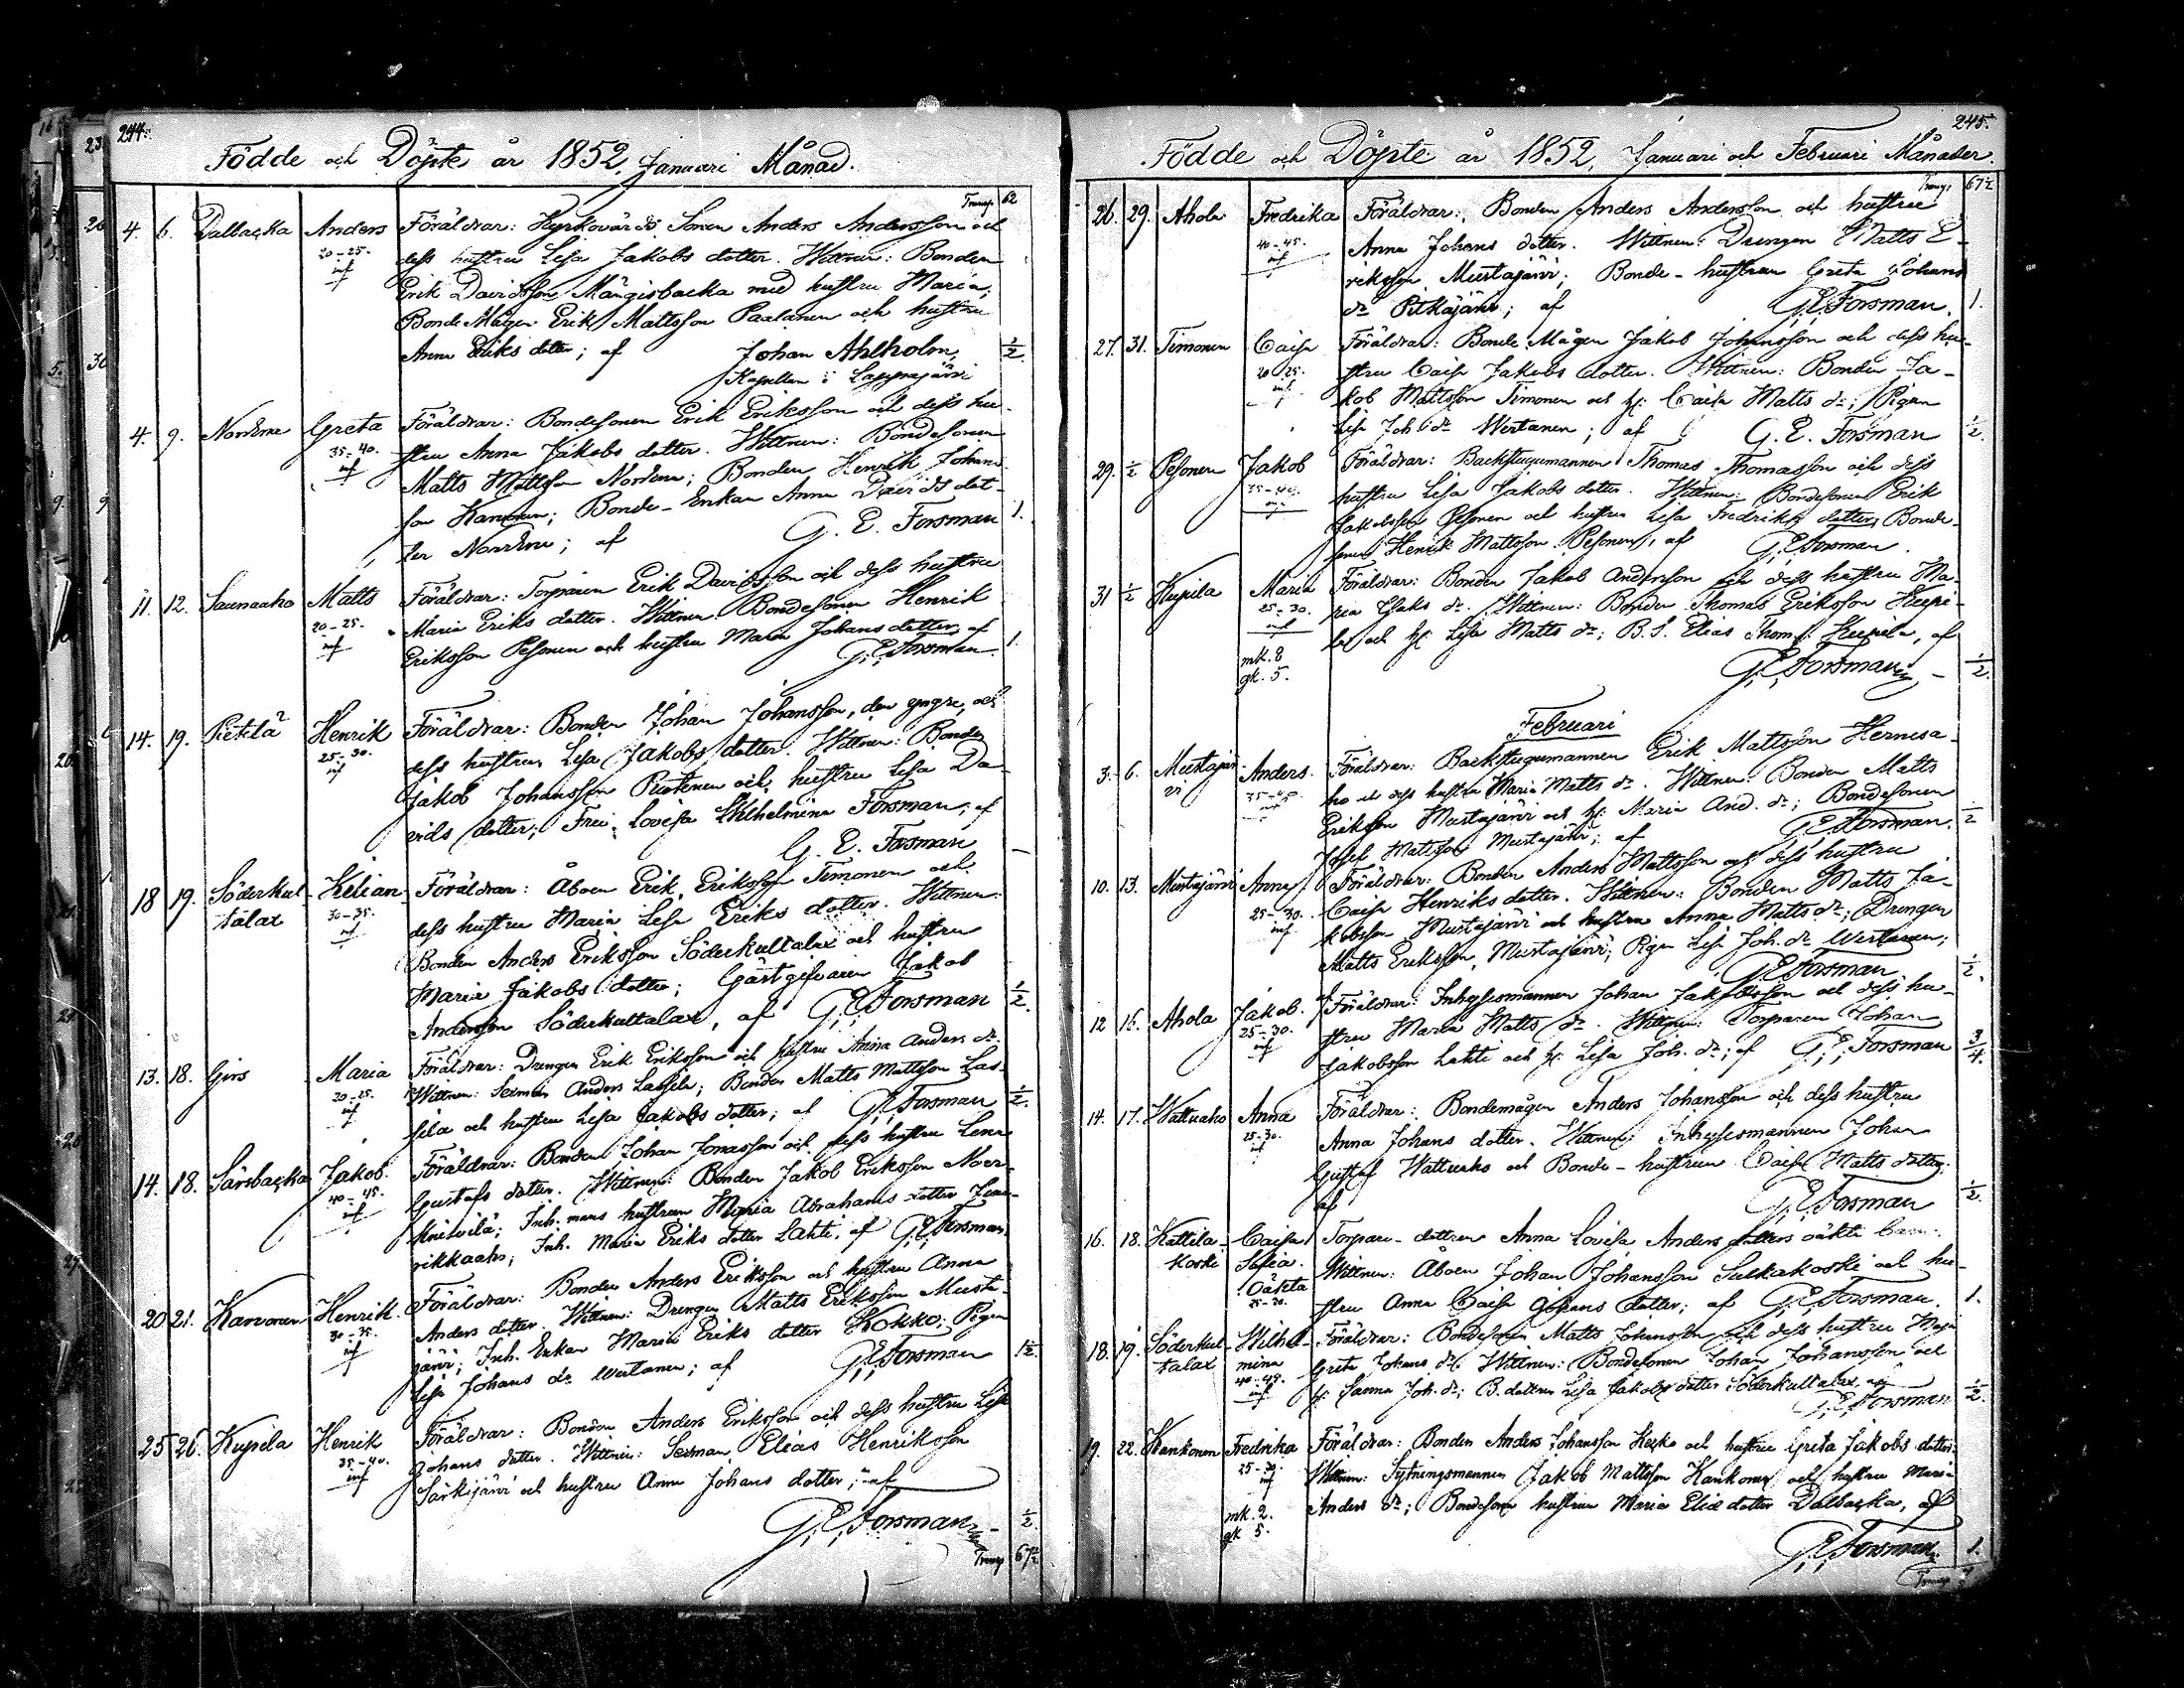 244.
Födde och Döpte år 1852, Januari Månad.
Transp. 62
4. 6. Dalbacka Anders Föräldrar: Kyrkovärds Sonen Anders Andersson och
20-25. dess hustru Lisa Jakobs dotter. Wittnen: Bonden
inf Erik Davidsson Mångisbacka med hustru Maria;
Bonde Mågen Erik Mattsson Paalanen och hustru
Anna Eriks dotter; af Johan Ahlholm, 1/2
Kapellan i Lappajärvi
4. 9. Norrena Greta Föräldrar: Bondesonen Erik Eriksson och dess hu-
35-40. stru Anna Jakobs dotter. Wittnen: Bondesonen
inf Matts Mattsson Norrena; Bonden Henrik Johans-
son Karvonen; Bonde-Enkan Anna Davids dot-
ter Norrena; af G. E. Forsman 1.
11. 12. Saunaaho Matts Föräldrar: Torparen Erik Davidsson och dess hustru
20-25. Maria Eriks dotter. Wittnen: Bondesonen Henrik
inf Eriksson Pesonen och hustru Maria Johans dotter, af
G. E. Forsman. 1.
14. 19. Pietilä Henrik Föräldrar: Bonden Johan Johansson, den yngre, och
25-30. dess hustru Lisa Jakobs dotter. Wittnen: Bonden
inf Jakob Johansson och hustru Lisa Da-
vids dotter; Fru Lovisa Wilhelmina Forsman; af
G. E. Forsman —
18 19. Söderkul- Kelian Föräldrar: Åboen Erik Eriksson Timonen och
talax 30-35. dess hustru Maria Lisa Eriks dotter. Wittnen:
inf Bonden Anders Eriksson Söderkultalax och hustru
Maria Jakobs dotter; Gästgifvaren Jakob
Andersson Söderkultalax, af G. E. Forsman 1/2.
13. 18. Girs Maria Föräldrar: Drengen Erik Eriksson och hustru Anna Anders dr.
20-25. Wittnen: Sexman Anders Lassila; Bonden Matts Mattsson Las-
inf sila och hustru Lisa Jakobs dotter; af G. E. Forsman 1/2.
14. 18. Särsbacka Jakob. Föräldrar: Bonden Johan Jonasson och dess hustru Lena
40-45. Gustafs dotter. Wittnen: Bonden Jakob Eriksson
inf Inh. mans hustrun Maria Abrahams dotter
rikkaaho; Inh. Maria Eriks dotter Lahti, af G. E. Forsman.
20 21. Karvonen Henrik. Föräldrar: Bonden Anders Eriksson och hustru Anna
30-35. Anders dotter. Wittnen: Drengen Matts Eriksson Musta-
inf järvi; Inh. Enkan Maria Eriks dotter Kokko; Pigan
Lisa Johans dr. Wertanen; af G. E. Forsman 1 1/2
25 26. Kupila Henrik Föräldrar: Bonden Anders Eriksson och dess hustru Lisa
35-40. Johans dotter. Wittnen: Sexman Elias Henriksson
inf Särkijärvi och hustru Anna Johans dotter; af
G. E. Forsman 1/2
Transp. 67 1/2
245.
Födde och Döpte år 1852, Januari och Februari Månader.
Transp. 67 1/2
26. 29. Ahola Fredrika Föräldrar: Bonden Anders Andersson och hustru
40-45. Anna Johans dotter. Wittnen: Drengen Matts E-
inf riksson Mustajärvi; Bonde-hustrun Greta Johans
dr. Pitkäjärvi; af G. E. Forsman. 1.
27. 31. Timonen Caisa Föräldrar: Bonde Mågen Jakob Johansson och dess hu-
20-25. stru Caisa Jakobs dotter. Wittnen: Bonden Ja-
inf. kob Mattsson Timonen och h: Caisa Matts dr; Pigan
Lisa Joh. dr. Wertanen; af G. E. Forsman 1/2.
29. 1/2 Pesonen Jakob Föräldrar: Backstugumannen Thomas Thomasson och dess
35-40. hustru Lisa Jakobs dotter. Wittnen: Bondesonen Erik
inf Jakobsson Pesonen och hustru Lisa Fredriks dotter, Bonde-
sonen Henrik Mattsson Pesonen, af G. E. Forsman.
31 1/2 Kupila Maria Föräldrar: Bonden Jakob Andersson och dess hustru Ma-
25-30. ria Isaks dr. Wittnen: Bonden Thomas Eriksson Kupi-
inf la och h: Lisa Matts dr; B. S. Elias Thom.s. Kupila, af
mk. 8
gk. 5. G. E. Forsman 1/2.
Februari
3. 6. Mustajär- Anders. Föräldrar: Backstugumannen Erik Mattsson Hernesa-
vi 35-40. ho och dess hustru Maria Matts dr. Wittnen: Bonden Matts
inf Eriksson Mustajärvi och h: Maria And. dr; Bondesonen
Josef Mattsson Mustajärvi; af G. E. Forsman. 1/2
10. 13. Mustajärvi Anna Föräldrar: Bonden Anders Mattsson och dess hustru
25-30. Caisa Henriks dotter. Wittnen: Bonden Matts Ja-
inf. kobsson Mustajärvi och hustru Anna Matts dr; Drengen
Matts Eriksson, Mustajärvi; Pigan Lisa Joh. dr. Wertanen;
af G. E. Forsman 1/2.
12 15. Ahola Jakob. Föräldrar: Inhysesmannen Johan Jakobsson och dess hu-
25-30. stru Maria Matts dr. Wittnen: Torparen Johan
inf Jakobsson Lahti och h: Lisa Joh. dr; af G. E. Forsman 3/4.
14. 17. Wattuaho Anna Föräldrar: Bondemågen Anders Johansson och dess hustru
25-30. Anna Johans dotter. Wittnen: Inhysesmannen Johan
inf Gustaf Wattuaho och Bonde-hustrun Caisa Matts dotter;
af G. E. Forsman 1/2.
16. 18. Kattila- Caisa Torpare-dottren Anna Lovisa Anders dotters oäkta barn:
koski Sofia. Wittnen: Åboen Johan Johansson Sulkakoski och hu-
Oäkta
25-30. stru Anna Caisa Johans dotter; af G. E. Forsman. 1.
18. 19. Söderkul- Wilhel- Föräldrar: Bondesonen Matts Johansson och dess hustru Maja
talax mina Greta Johans dr. Wittnen: Bondesonen Johan Johansson och
40-45. h: Sanna Joh. dr; B. dottren Lisa Jakobs dotter Söderkultalax, af
inf G. E. Forsman 1/2.
19. 22. Kankonen Fredrika Föräldrar: Bonden Anders Johansson Kesko och hustru Greta Jakobs dotter.
25-30. Wittnen: Sytningsmannen Jakob Mattsson Kankonen och hustru Maria
inf Anders dr; Bondesons hustrun Maria Eliæ dotter Dalbacka, af
mk. 2.
gk 5. G. E. Forsman. 1.
Transp.